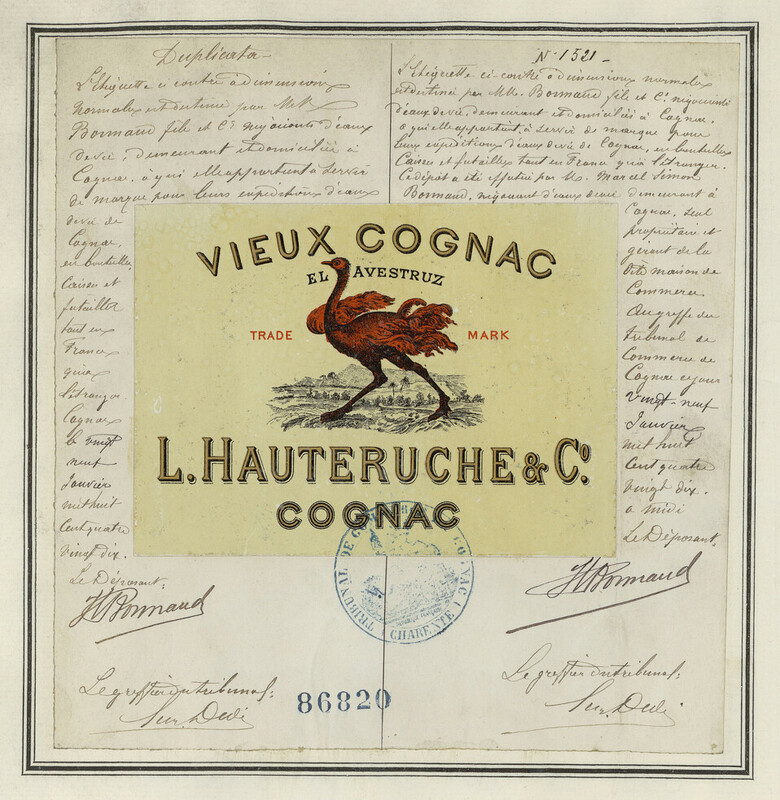 Duplicata
L'étiquette ci contre à dimensions
normales est destinée par MM
Bonnaud fils et Cie négociants d'eaux
de vie, demeurant et domiciliés à
Cognac, à qui elle appartient à servir
de marque pour leurs expéditions d'eaux
de vie de
Cognac,
en bouteilles,
Caisses et
futailles
tant en
France
qu'à
l'étranger
Cognac
le vingt
neuf
Janvier
mil huit
Cent quatre
vingt dix.
Le Déposant:
Bonnaud
Le greffier du tribunal:
No 1521
L'étiquette ci-contre à dimensions normales
est destinée par MM. Bonnaud fils et Cie négociants
d'eaux de vie, demeurant et domiciliés à Cognac,
à qui elle appartient, à servir de marque pour
leurs expéditions d'eaux de vie de Cognac, en bouteilles
Caisses et futailles tant en France qu'à l'étranger.
Ce dépôt a été effectué par M. Marcel Simon
Bonnaud, négociant d'eaux de vie demeurant à
Cognac, seul
propriétaire et
gérant de la
dite maison de
Commerce
Au greffe du
tribunal de
Commerce de
Cognac ce jour
Vingt-neuf
Janvier
mil huit
Cent quatre
vingt dix.
à midi
Le Déposant:
Bonnaud
Le greffier du tribunal:
VIEUX COGNAC
EL AVESTRUZ
TRADE MARK
L. HAUTERUCHE & Co.
COGNAC
TRIBUNAL DE COGNAC
CHARENTE
86820